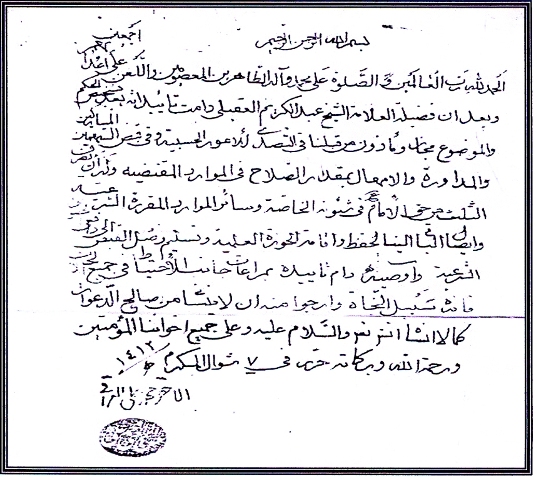 بسم الله الرحمن الرحيم
الحمد لله رب العالمين والصلوة على محمد وآله الطاهرين المعصومين واللعن على اعدائهم اجمعين
وبعد ان فضيلة العلامة الشيخ عبد الكريم العقيلي دامت تأييداته
والموضوع مجاز ومأذون من قبلنا في التصدي للامور الحسبية وفي قبض
والمداورة والامهال بمقدار الصلاح في الموارد المقتضيه
الثلث من حق الامام ع في شئونه الخاصة وسائر الموارد المقررة
وايصال الباقي الينا لحفظ واقامة الحوزة العلمية وتسليم وصل القبض
الشرعية واوصيه دام تأييده بمراعات جانب الاحتياط في جميع
فانه سبيل النجاة وارجوا منه ان لا ينسانا من صالح الدعوات
كما لا انساه انشاء الله والسلام عليه وعلى جميع اخواننا المؤمنين
ورحمة الله وبركاته حرر في ٧ شوال المكرم ١٤١٢
الاحقر